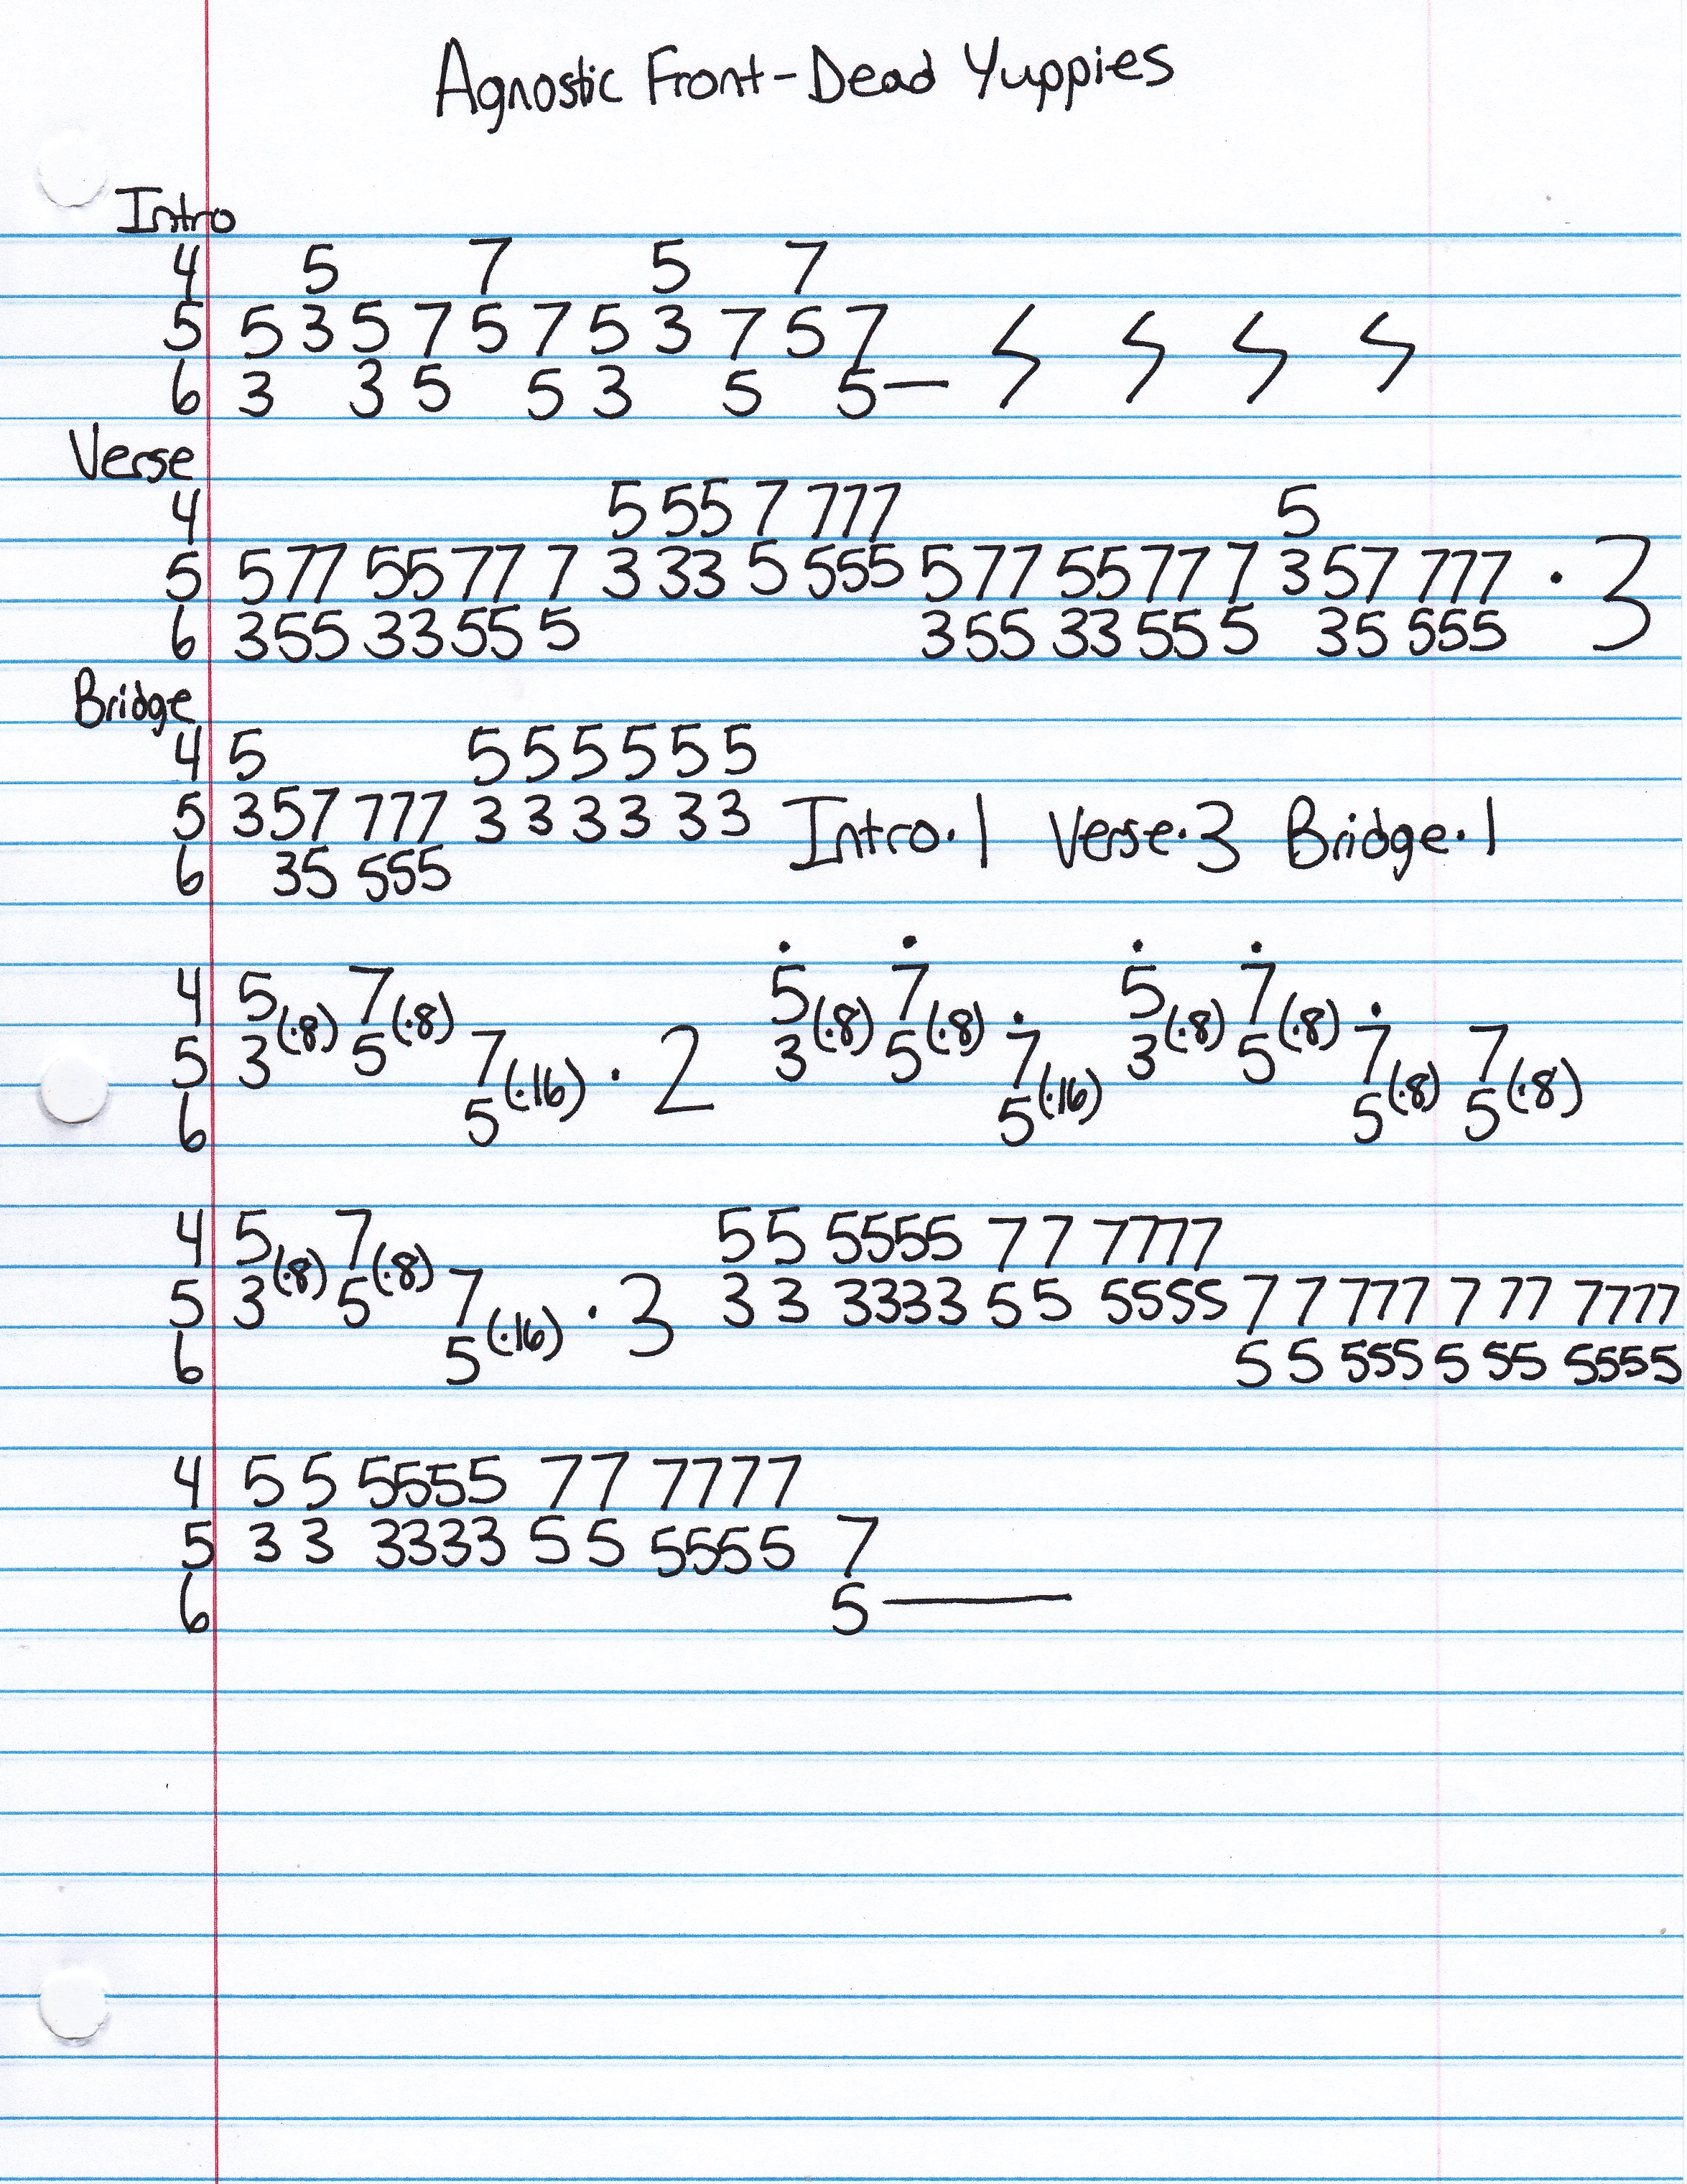 Agnostic Front-Dead Yuppies
Intro
4 5 7 5 7
5 5 3 5 7 5 7 5 3 7 5 7
6 3 3 5 5 3 5 5—
Verse
4 5 55 7 777 5
5 577 5577 7 3 33 5 555 577 55777 357 777 · 3
6 355 3355 5 355 3355 5 35 555
Bridge
4 5 5 5 5 5 5 5
5 357 777 3 3 3 3 3 3 Intro·1 Verse·3 Bridge·1
6 35 555
4 5(·8) 7(·8) 5(·8) 7(·8) 5(·8) 7(·8)
5 3 5 7(·16) · 2 3 5 7(·16) 3 5 7(·8) 7(·8)
6 5 5 5 5
4 5(·8) 7(·8) 5 5 5555 7 7 7777
5 3 5 7(·16) · 3 3 3 3333 5 5 5555 7 7 777 7 77 7777
6 5 5 5 555 5 55 5555
4 5 5 5555 7 7 7777
5 3 3 3333 5 5 5555 7
6 5—